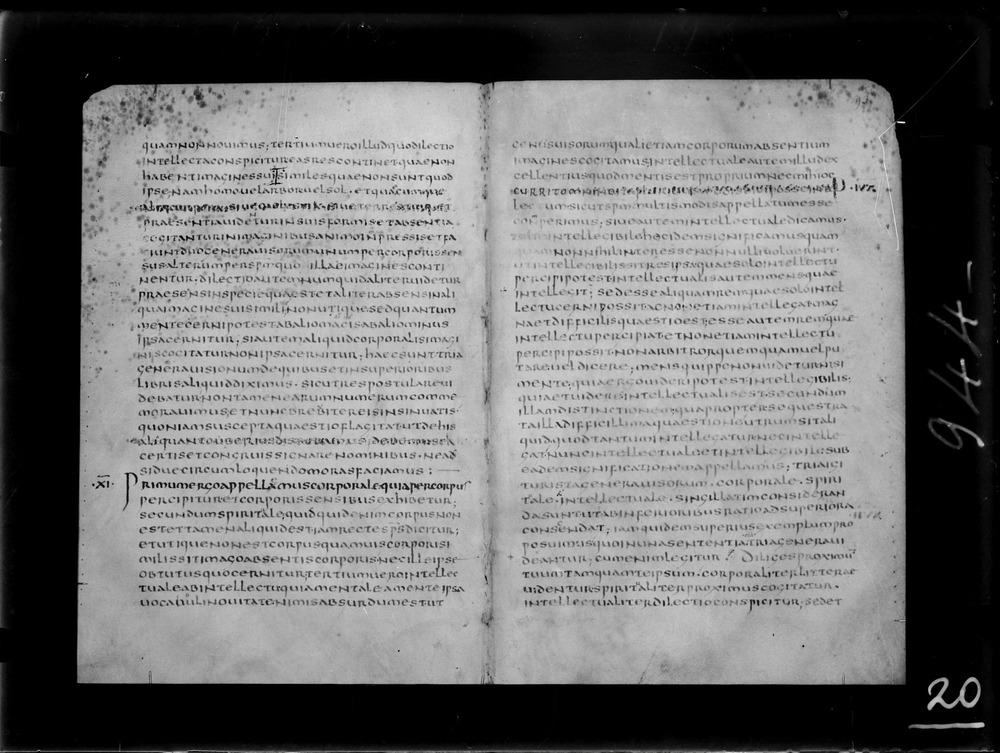 quamnonnovimus; tertiumueroilludquodilectio
intellectaconspicitureasrescontinetquaenon
habentimaginessuisimilesquaenonsuntquod
ipsenamhomouelarboruelsol · etquaecumque
praesentiauidenturinsuisformisetabsentia
cogitanturinimaginibusanimoinpressisetfa
ciuntduogenerauisorumunumpercorporissen
susalterumperspm quo illaeimaginesconti
nentur; dilectioautemnumquidaliteruidetur
praesensinspeciequaestetaliterabsensinali
quaimaginesuisimilinonutiquesedquantum
mentecernipotestabaliomagisabaliominus
ipsacernitur; siautemaliquidcorporalisimagi
niscogitaturnonipsacernitur; haecsunttria
generauisionumdequibusetinsuperioribus
librisaliquiddiximus · sicutrespostulareui
debaturnontamenearumnumerumcomme
morauimus; etnuncbrediterejsinsinuatis ·
quoniamsusceptaquaestioflagitatutdehis
aliquantouberiusdisseramus; debemusea
certisetcongruissignarenominibus · nead
siduecircumloquendomorasfaciamus :
·XI· Primumergoappellamuscorporalequiapercorpus
percipituretcorporissensibusexhibetur;
secundumspiritale; quidquidenimcorpusnon
estettamenaliquidestiamrectespsdicitur;
etutiquenonestcorpusquamuiscorporisi
milissitimagoabsentiscorporisnecilleipse
obtutusquocernitur; tertiumuerointellec
tualeabintellectuquiamentaleamenteipsa
uocabulinouitatenimisabsurdumestut
censuisorumqualietiamcorporumabsentium
imaginescogitamusintellectualeautemilludex
cellentiusquodmentisestpropriumnecmihioc
·IVX·
lec umsicutspmmultismodisappellatumesse
comperimus, siuoautemintellectualedicamus ·
intellegibilehocidemsignificamusquam
quam nonnihilinteressenonnulliuoluerunt ·
utintellegibilissitresipsaquaesolointellectu
percipipotestintellectualisautemmensquae
intellegit; sedessealiquamremquaesolointel
lectucernipossitacnonetiamintellegatmag
naetdifficilisquaestioest; esseautemremquae
intellectupercipiatetnonetiamintellectu
percipipossitnonarbitrorquemquamuelpu
tareueldicere; mensquippenonuideturnisi
mente; quiaergouideripotestintellegibilis;
quiaetuidereintellectualisestsecundum
illamdistinctionem; quapropterseques tra
taillad difficillimaquaestioneutrumsitali
quidquodtantumintellegaturnecintelle
gatnuncintellectualeetintellegibilesub
eademsignificationeappellamus; triaigi
turistageneravisorum · corporale · spiri
tale · intellectuale · singillatimconsideran
dasuntutabinferioribusratioadsuperiora
conscendat; iamquidemsuperiusexemplumpro
posuimusquoinunasententiatriageneraui
deantur; cumenimlegitur Diligesproximum
tuumtamquamteipsum · corporaliterlitterae
uidenturspiritaliterproximuscogitatur ·
intellectualiterdilectioconspicitur; sedet
944
20